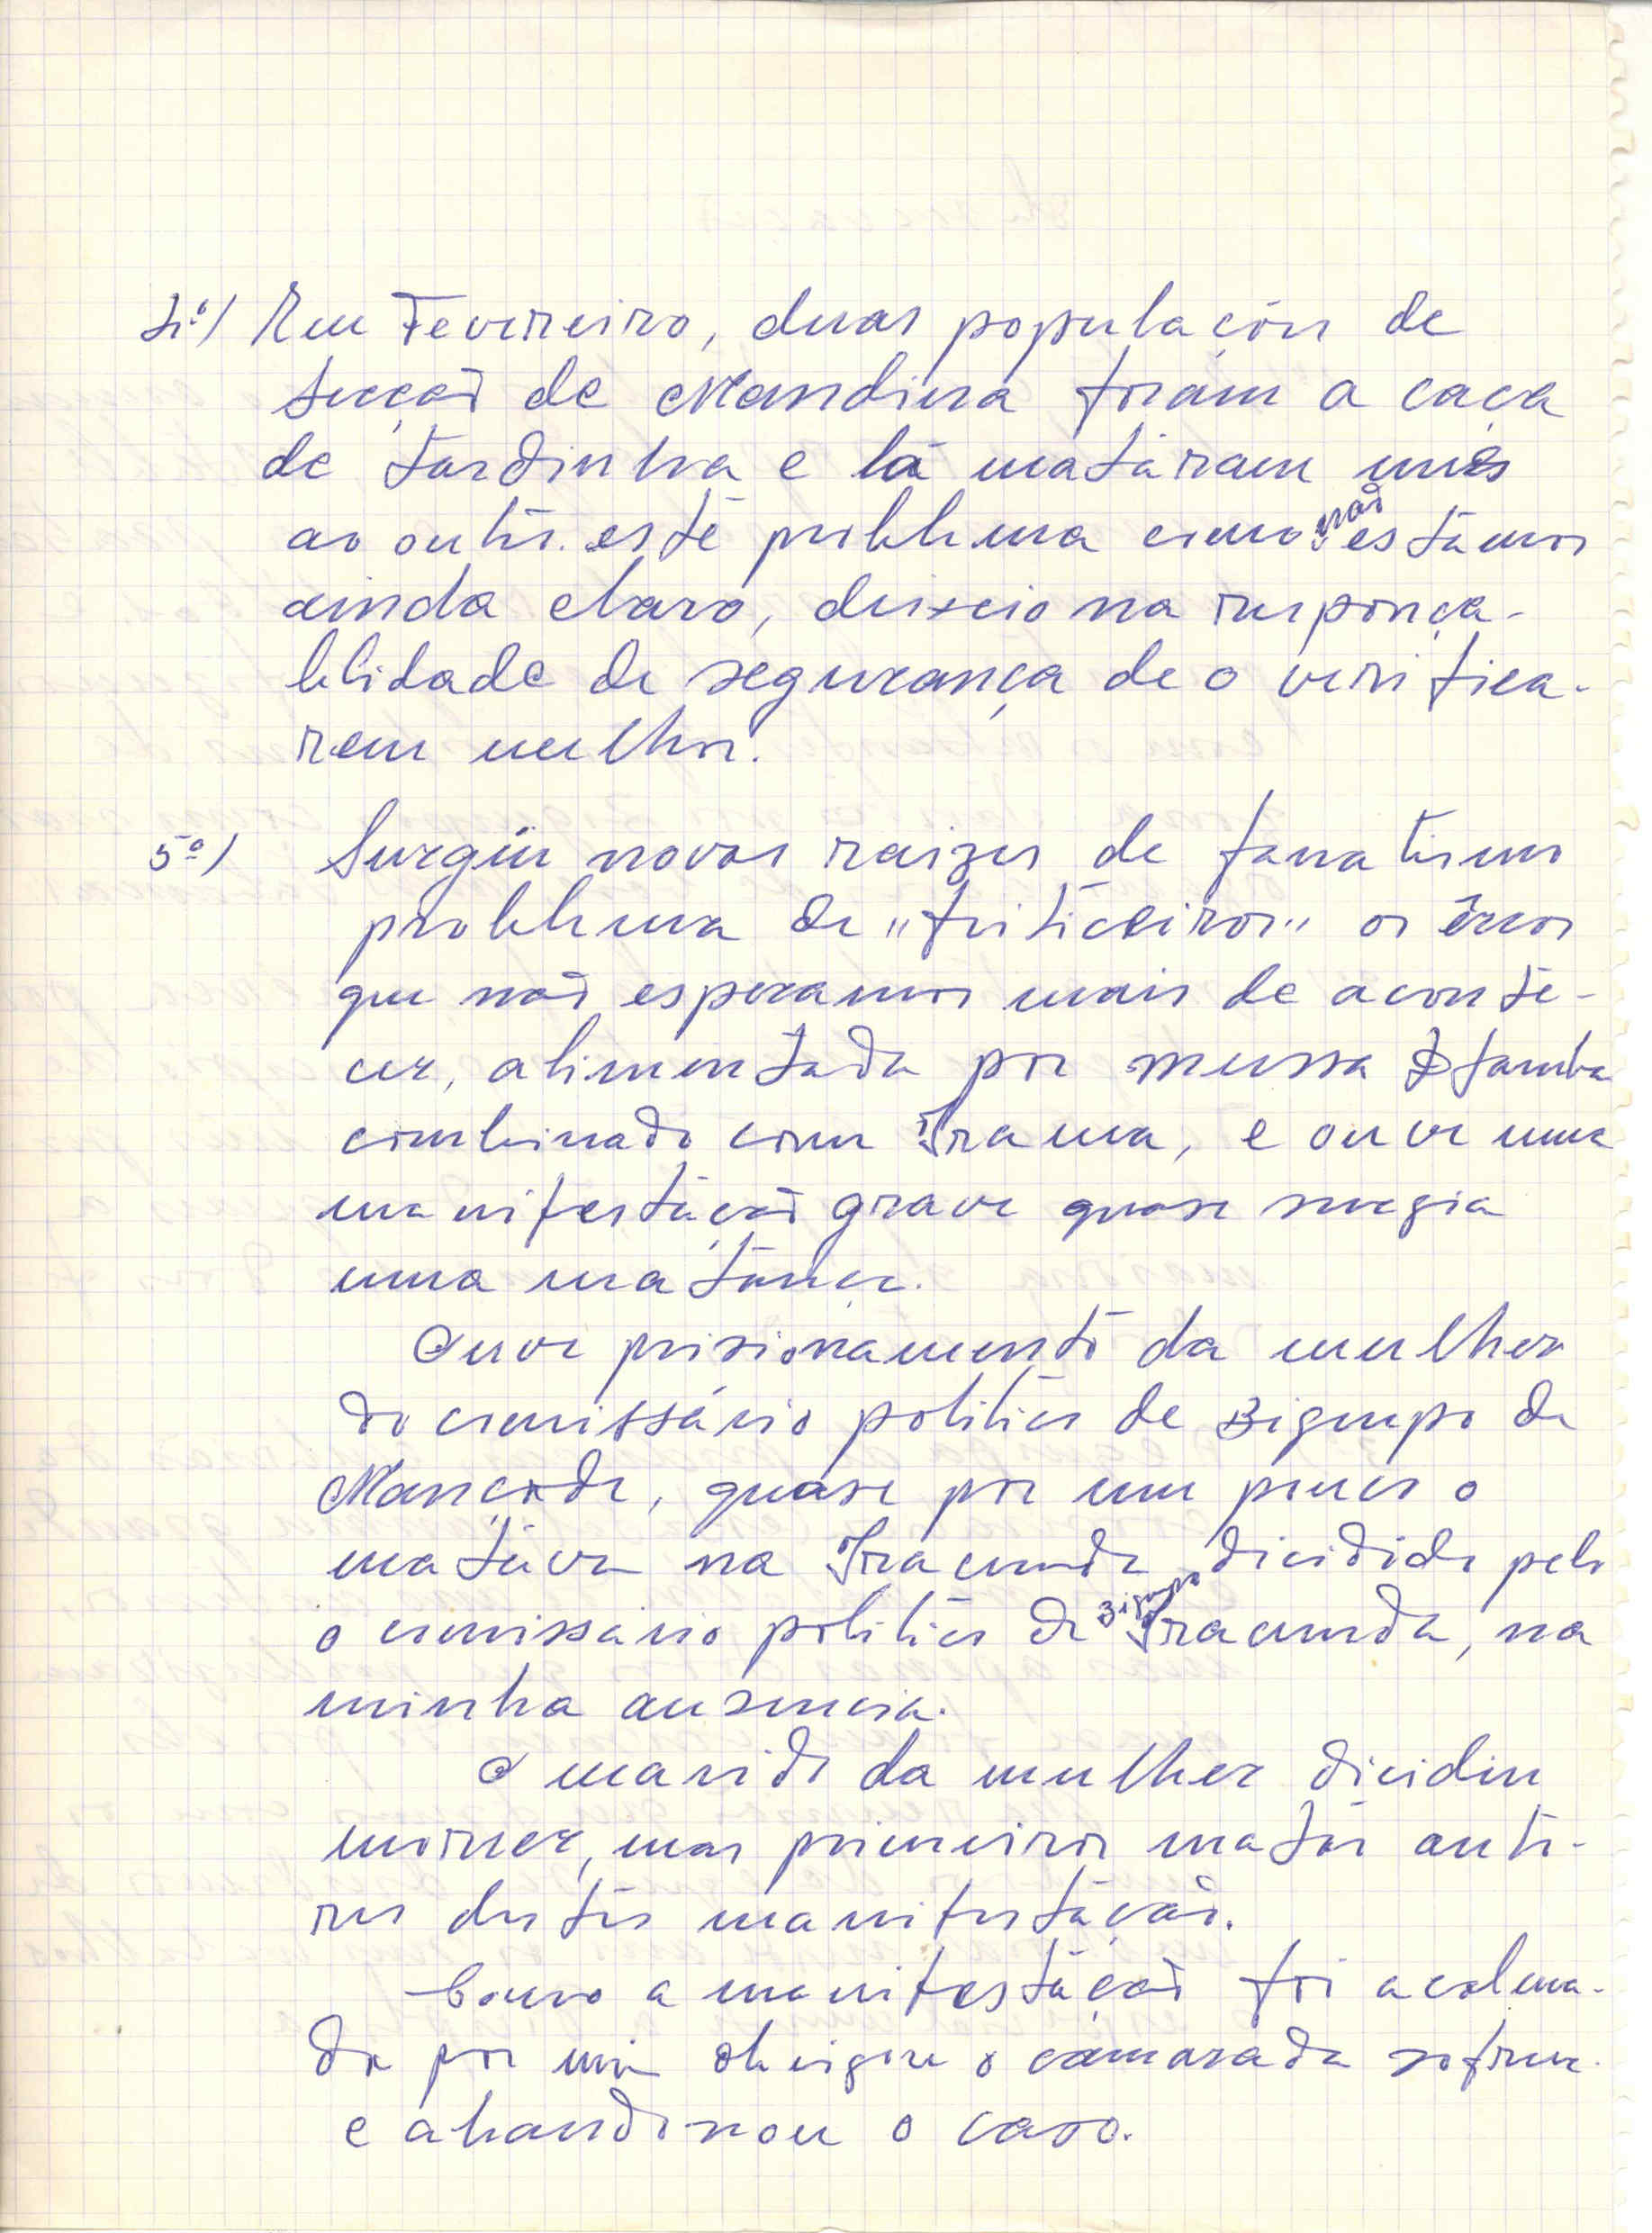 4º) Em Fevereiro, duas populações de
secção de Mandina foram a caça
de tardinha e lá mataram unes
ao outro. este problema como não estamos
ainda claro, deixeio na responça-
blidade de segurança de o verifica-
rem melhor.
5º) Surgiu novas raizes de fanatismo
problema de "feiticeiros" os êrros
que não esperamos mais de aconte-
cer, alimentada por mussa Samba
combinado com Irama, e ouve uma
manifestação grave quase surgia
uma matança.
Ouve prisionamento da mulher
do comissário politico de Bigrupo de
Mançode, quase por um pouco o
matava na Iracunda dicidido pelo
o comissário politico de Bigrupo Iracunda, na
minha ausencia.
O marido da mulher dicidiu
morrer, mas primeiror matar auto-
res destes manifestação.
Como a manifestação foi acalma-
da por mim obriguei o camarada sofrer
e abandonou o caso.